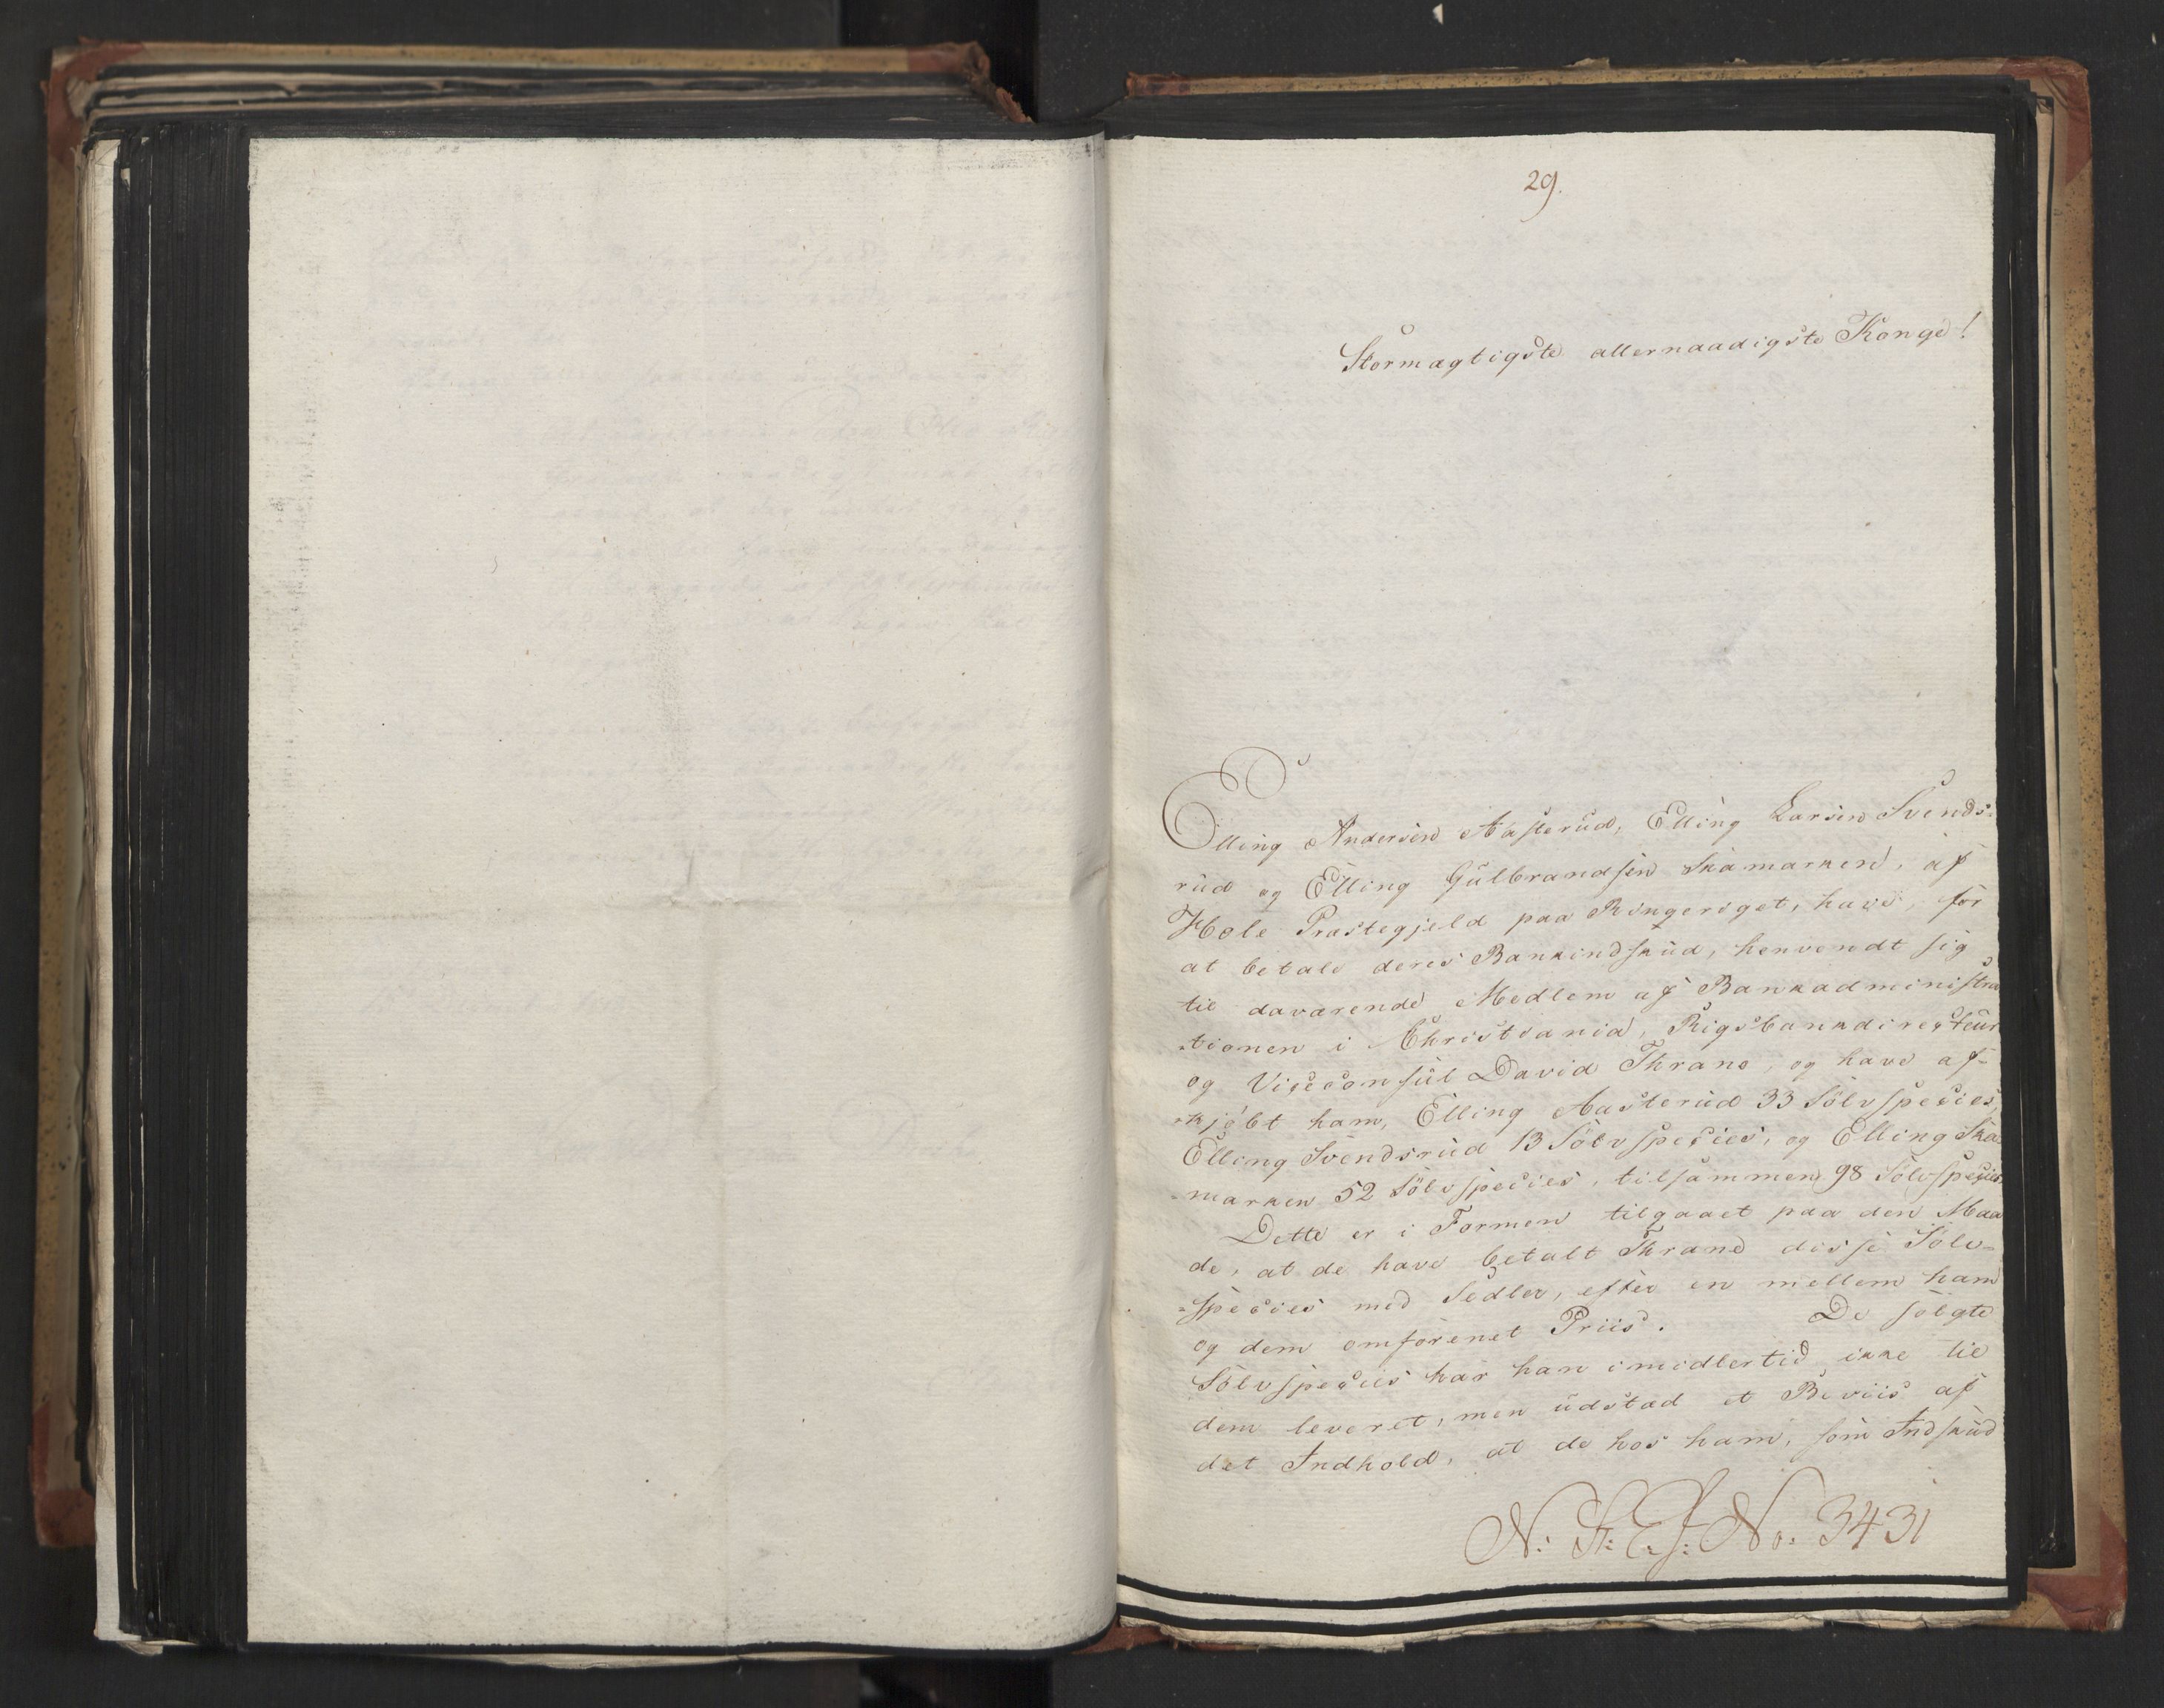 29.
Stormægtigste allernaadigste Konge!
Elling Andersen Aasterud, Elling Larsen Svends-
rud og Elling Gulbrandsen Skamarken, af
Hole Præstegjeld paa Ringeriget, have, for
at betale deres Bankindskud, henvendt sig
til daværende Medlem af Bankadministra
-tionen i Christiania, Rigsbankdirecteur
og Viceconsul David Thrane, og have af-
-kjøbt ham, Elling Aasterud 33 Sölvspecies,
Elling Svendsrud 13 Sölvspecies, og Elling Ska-
-marken 52 Sölvspecies, tilsammen 98 Sölvspecies.
Dette er i Formen tilgaaet paa den Maa
de, at de have betalt Thrane disse Sölv-
-species med Sedler, efter en mellem ham
og dem omforenet Priis. De solgte
Sölvspecies har han imidlertid ikke til
dem leveret, men udstæd et Beviis af
det Indhold, at de hos ham, som Indskud
N: St: E. J: No: 3431